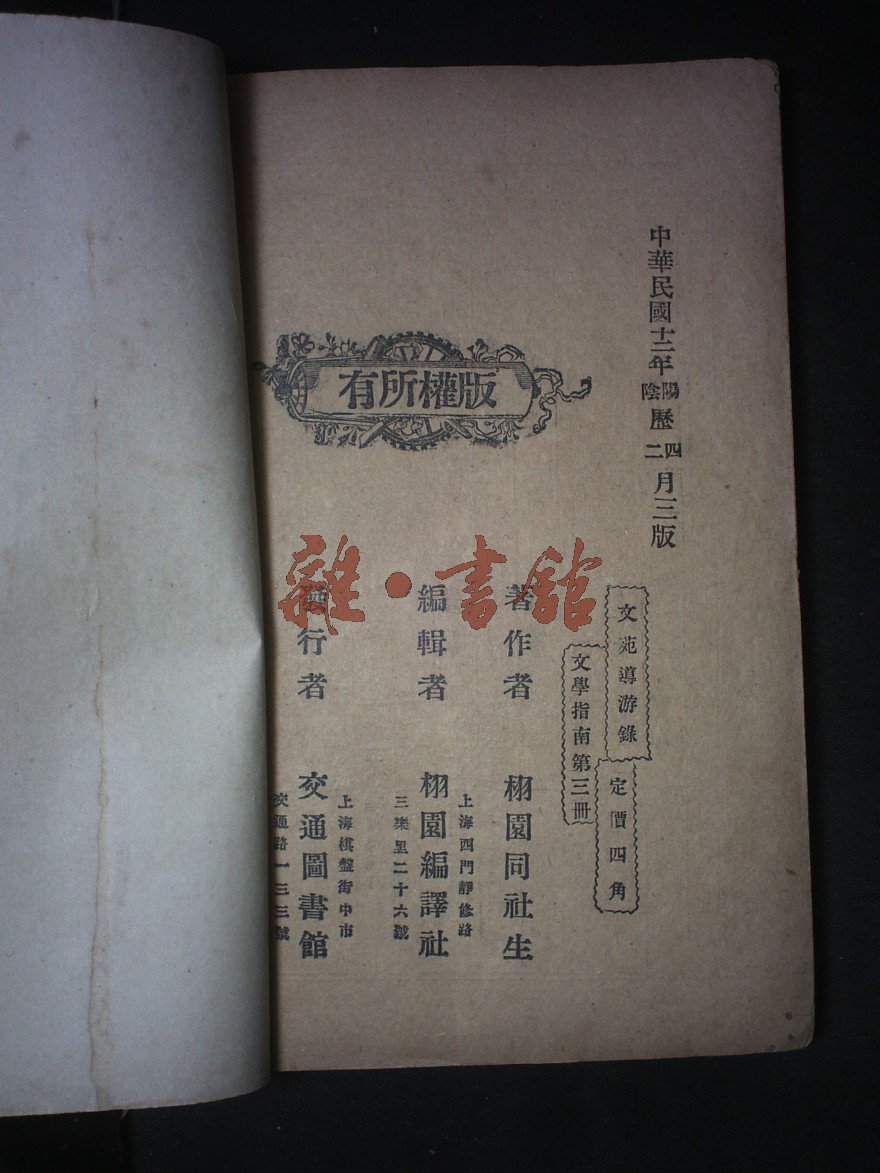 中華民國十二年陽陰歷四二月三版
文苑導游錄
定價四角
文學指南第三冊
版權所有
著作者 栩園同社生
上海西門靜修路
編輯者 栩園編譯社
三樂里二十六號
上海棋盤街中市
發行者 交通圖書館
交通路一三三號
雜·書館